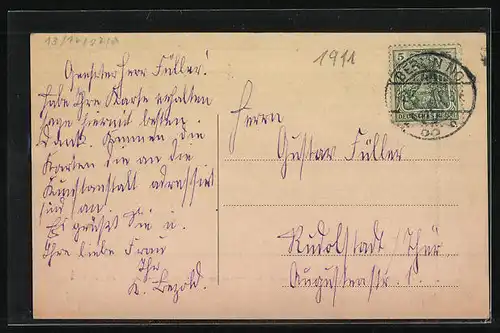 13/12/0210
1911
Geehrter Herr Füller!
habe Ihre Karte erhalten
sage hiermit besten
Dank. Kommen die
Karten die an die
Kunstanstalt adressirt
sind an.
Es grüßt Sie u.
Ihre liebe Frau
Ihr
K. Bezold.
5
BERLIN NO.
Herrn
Gustav Füller
Rudolstadt / Thür
Augustenstr.